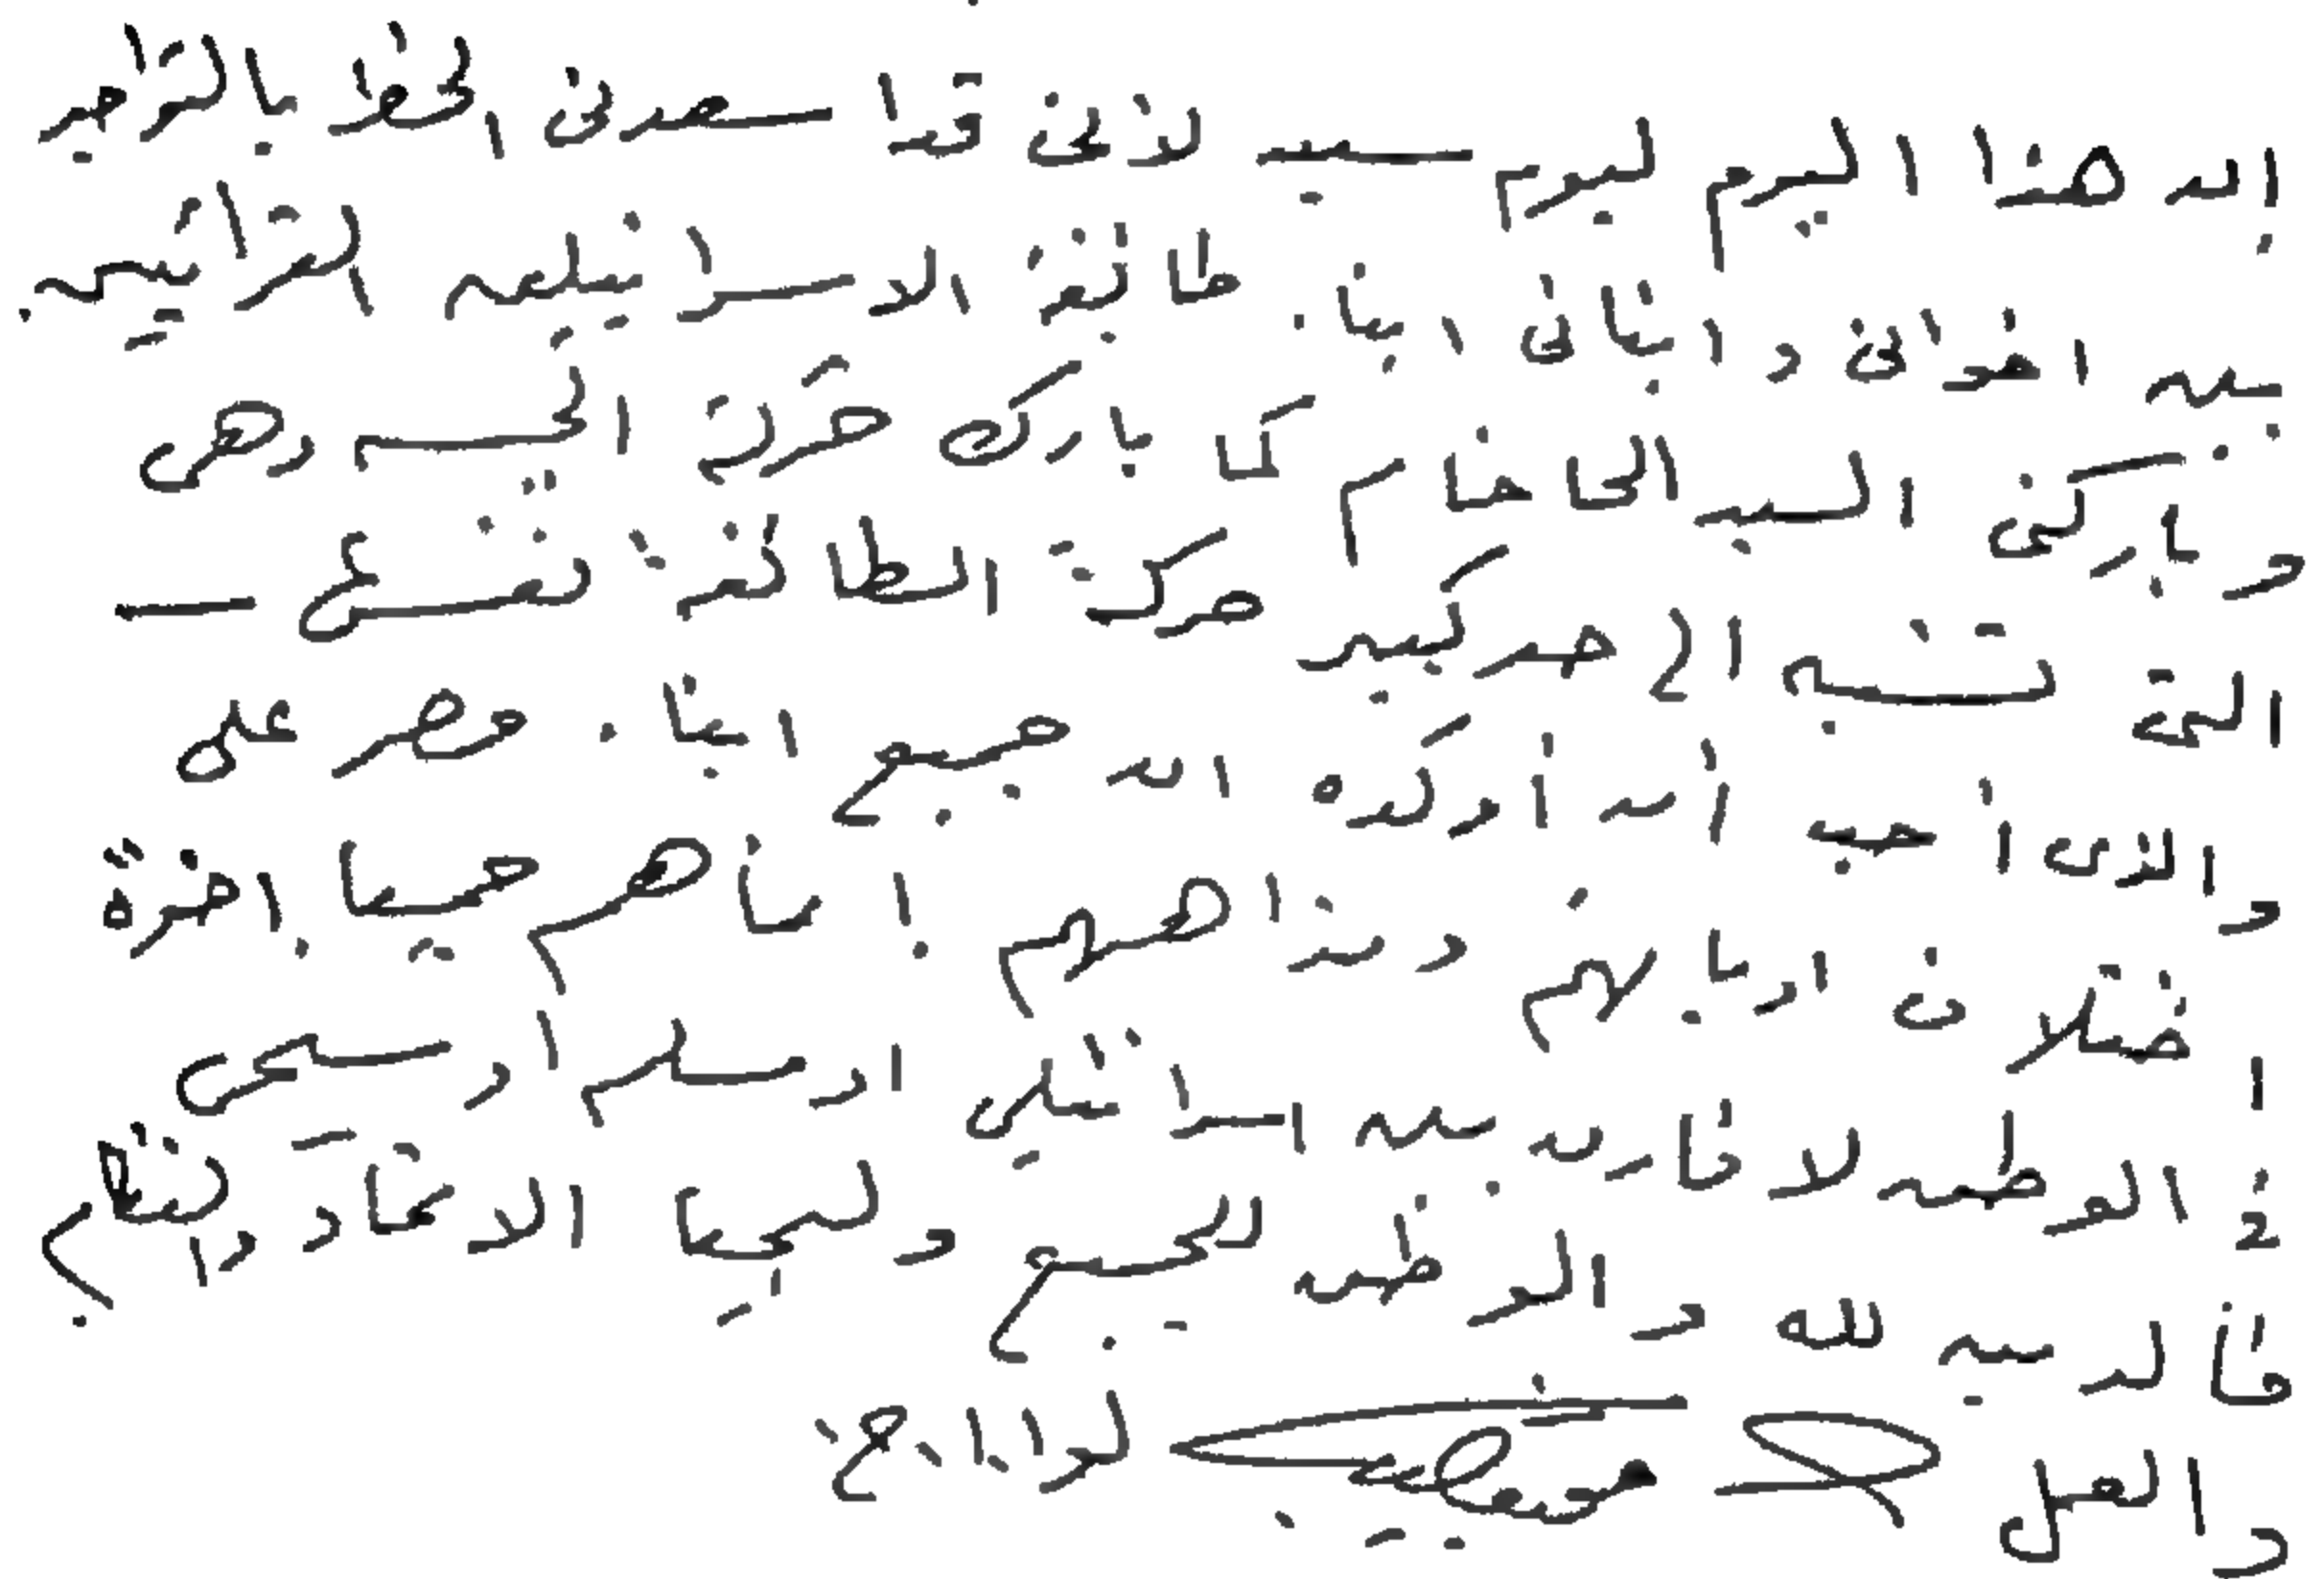 إن هذا اليوم ليوم سعيد لأننى قد أسعدنى الحظ بالتواجد
بين اخوانى وابنائى ابناء طائفة الاسرائيليين القرائيين
وباركنى السيد الحاخام كما بارك حركة الجيش وهى
التى تنتسب الى حد كبير حركة الطائفة
والذى أحب أن أؤكده ان جميع ابناء مصر على
اختلاف اديانهم ومذاهبهم إنما هم جميعا اخوة
فى الوطن لا فارق بين اسرائيلى او مسلم او مسيحى
فالدين لله والوطن للجميع وليحيا الاتحاد والنظام
والعمل لواء أ.ح